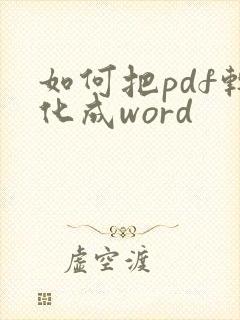 如何把pdf轉
化成word
虚空渡